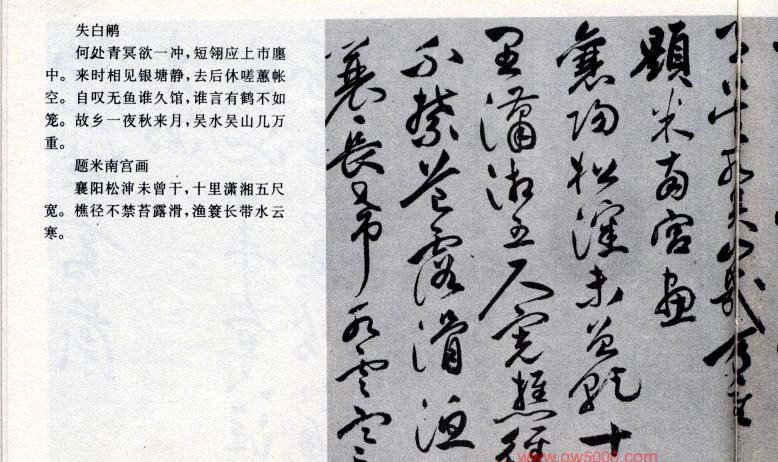 失白鹇
何处青冥欲一冲，短翎应上市廛
中。来时相见银塘静，去后休嗟蕙帐
空。自叹无鱼谁久馆，谁言有鹤不如
笼。故乡一夜秋来月，吴水吴山几万
重。
题米南宫画
襄阳松渖未曾干，十里潇湘五尺
宽。樵径不禁苔露滑，渔簑长带水云
寒。
題米南宫畫
襄陽松瀋未曾乾十
里瀟湘五尺寬樵徑
不禁苔露滑漁
蓑長帶水雲寒
www.gw5000.com